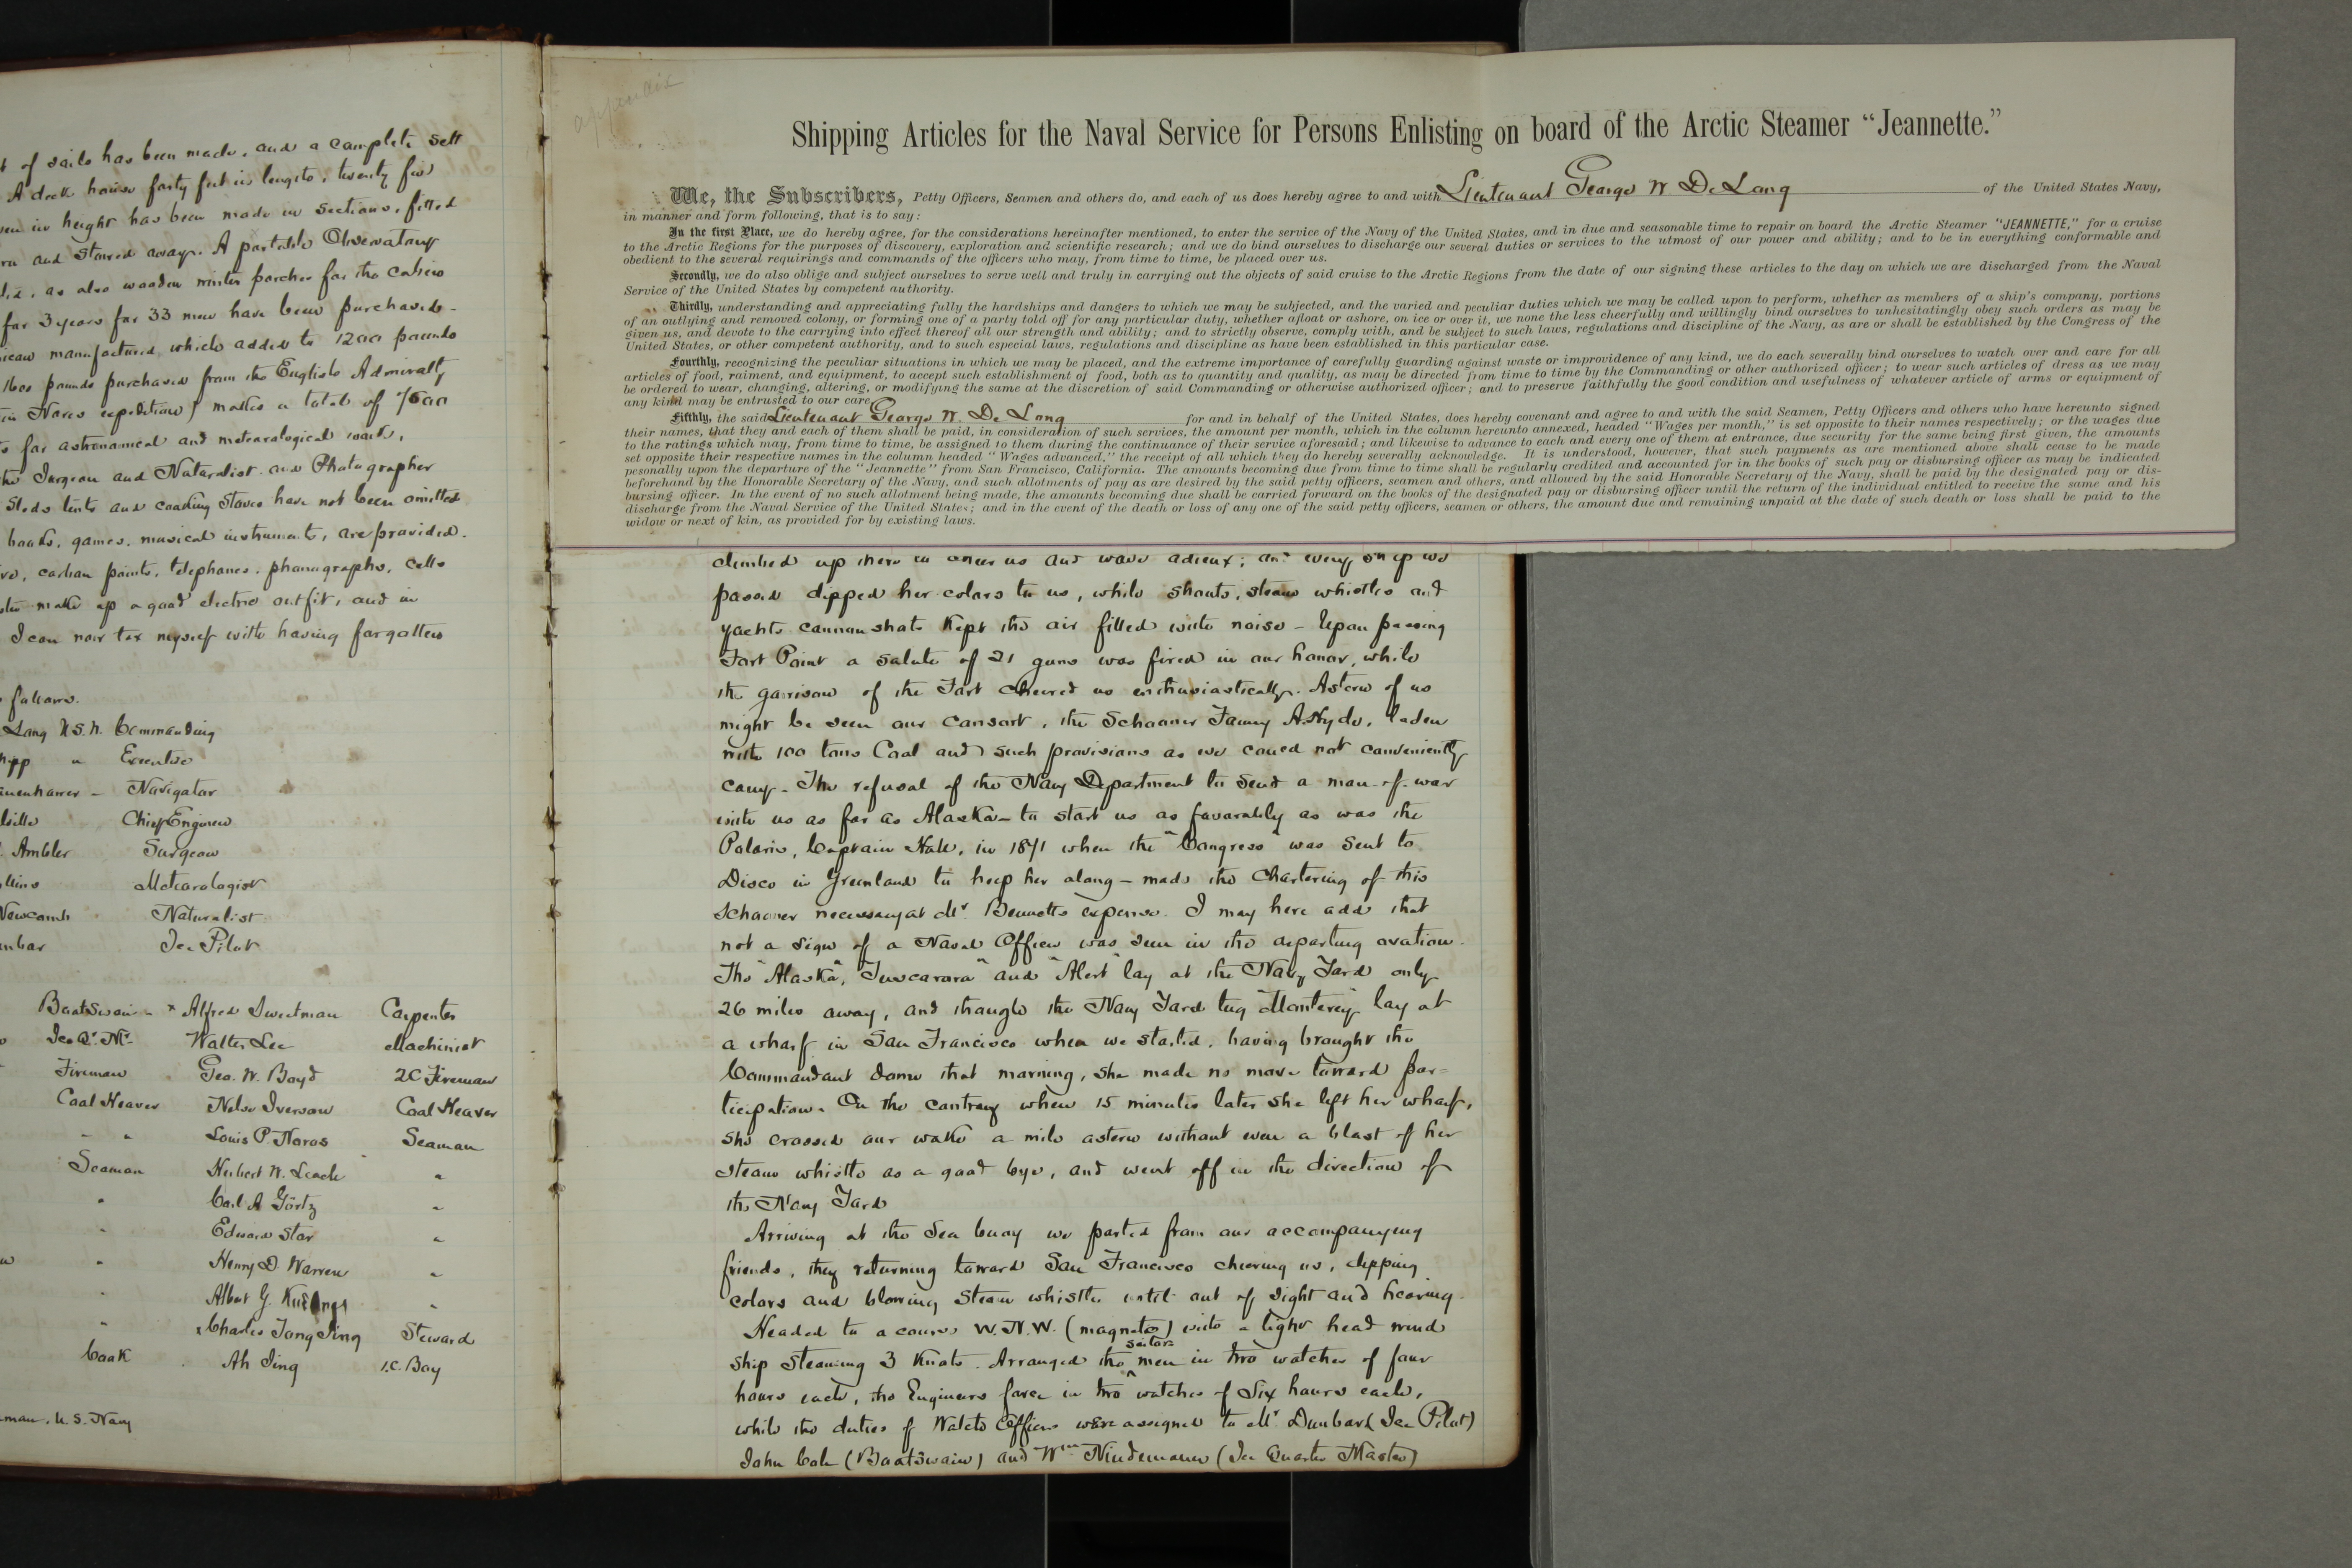 of sails has been made, and a complete sett
A deck house forty feet in length, twenty five
in height has been made in sections, fitted
and stowed away. A portable Observatory
as also wooden winter porches for the cabin
for 3 years for 33 men have been purchased -
manufactured, which added to 1200 pounds
1600 pounds purchased from the English Admiralty
Nares expedition) makes a total of
for astronomical and meteorological work,
Surgeon and Naturalist and Photographer
Sleds tents and cooking stoves have not been omitted
books, games, musical instruments, are provided.
carbon points, telephones, phonographs, cells
make up a good electric outfit, and in
I can now tax myself with having forgotten
follows.
Long U.S.N. Commanding
" Executive
- Navigator
Chief Engineer
Ambler Surgeon
Meteorologist
Newcomb Naturalist
Ice Pilot
Boatswain - x Alfred Sweetman Carpenter
Ice Qr. Mr. Walter Lee Machinist
Fireman Geo. W. Boyd 2C Fireman
Coal Heaver Nelse Iverson Coal Heaver
" " Louis P. Noros Seaman
Seaman Herbert W. Leach "
" Carl A Görtz "
" Edward Star "
" Henry D. Warren "
" Albert G. "
" x Charles Tong Sing Steward
Cook Ah Sing 1.C. Boy
U.S. Navy
appendix
Shipping Articles for the Naval Service for Persons Enlisting on board of the Arctic Steamer “Jeannette.”
We, the Subscribers, Petty Officers, Seamen and others do, and each of us does hereby agree to and with Lieutenant George W De Long of the United States Navy,
in manner and form following, that is to say:
In the first Place, we do hereby agree, for the considerations hereinafter mentioned, to enter the service of the Navy of the United States, and in due and seasonable time to repair on board the Arctic Steamer "JEANNETTE," for a cruise
to the Arctic Regions for the purposes of discovery, exploration and scientific research; and we do bind ourselves to discharge our several duties or services to the utmost of our power and ability; and to be in everything conformable and
obedient to the several requirings and commands of the officers who may, from time to time, be placed over us.
Secondly, we do also oblige and subject ourselves to serve well and truly in carrying out the objects of said cruise to the Arctic Regions from the date of our signing these articles to the day on which we are discharged from the Naval
Service of the United States by competent authority.
Thirdly, understanding and appreciating fully the hardships and dangers to which we may be subjected, and the varied and peculiar duties which we may be called upon to perform, whether as members of a ship's company, portions
of an outlying and removed colony, or forming one of a party told off for any particular duty, whether afloat or ashore, on ice or over it, we none the less cheerfully and willingly bind ourselves to unhesitatingly obey such orders as may be
given us, and devote to the carrying into effect thereof all our strength and ability; and to strictly observe, comply with, and be subject to such laws, regulations and discipline of the Navy, as are or shall be established by the Congress of the
United States, or other competent authority, and to such especial laws, regulations and discipline as have been established in this particular case.
Fourthly, recognizing the peculiar situations in which we may be placed, and the extreme importance of carefully guarding against waste or improvidence of any kind, we do each severally bind ourselves to watch over and care for all
articles of food, raiment, and equipment, to accept such establishment of food, both as to quantity and quality, as may be directed from time to time by the Commanding or other authorized officer; to wear such articles of dress as we may
be ordered to wear, changing, altering, or modifying the same at the discretion of said Commanding or otherwise authorized officer; and to preserve faithfully the good condition and usefulness of whatever article of arms or equipment of
any kind may be entrusted to our care.
Fifthly, the said Lieutenant George W. De Long for and in behalf of the United States, does hereby covenant and agree to and with the said Seamen, Petty Officers and others who have hereunto signed
their names, that they and each of them shall be paid, in consideration of such services, the amount per month, which in the column hereunto annexed, headed "Wages per month," is set opposite to their names respectively; or the wages due
to the ratings which may, from time to time, be assigned to them during the continuance of their service aforesaid; and likewise to advance to each and every one of them at entrance, due security for the same being first given, the amounts
set opposite their respective names in the column headed "Wages advanced," the receipt of all which they do hereby severally acknowledge. It is understood, however, that such payments as are mentioned above shall cease to be made
pesonally upon the departure of the "Jeannette" from San Francisco, California. The amounts becoming due from time to time shall be regularly credited and accounted for in the books of such pay or disbursing officer as may be indicated
beforehand by the Honorable Secretary of the Navy, and such allotments of pay as are desired by the said petty officers, seamen and others, and allowed by the said Honorable Secretary of the Navy, shall be paid by the designated pay or dis-
bursing officer. In the event of no such allotment being made, the amounts becoming due shall be carried forward on the books of the designated pay or disbursing officer until the return of the individual entitled to receive the same and his
discharge from the Naval Service of the United States; and in the event of the death or loss of any one of the said petty officers, seamen or others, the amount due and remaining unpaid at the date of such death or loss shall be paid to the
widow or next of kin, as provided for by existing laws.
climbed up there to cheer us and wave adieux; and every ship we
passed dipped her colors to us, while shouts, steam whistles and
yachts cannon shots kept the air filled with noise - Upon passing
Fort Point a salute of 21 guns was fired in our honor, while
the garrison of the Fort cheered us enthusiastically. Astern of us
might be seen our consort, the Schooner Fanny A. Hyde, laden
with 100 tons Coal and such provisions as we could not conveniently
carry - The refusal of the Navy Department to send a man-of-war
with us as far as Alaska - to start us as favorably as was the
Polaris, Captain Hall, in 1871 when the "Congress" was sent to
Disco in Greenland to help her along - made the chartering of this
Schooner necessary at Mr. Bennetts expense. I may here add that
not a sign of a Naval Officer was seen in the departing ovation.
The "Alaska", "Tuscarora" and "Alert" lay at the Navy Yard only
26 miles away, and though the Navy Yard tug "Monterey" lay at
a wharf in San Francisco when we started, having brought the
Commandant down that morning, she made no move toward par=
ticipation. On the contrary when 15 minutes later she left her wharf,
she crossed our wake a mile astern without even a blast of her
steam whistle as a good bye, and went off in the direction of
the Navy Yard
Arriving at the Sea buoy we parted from our accompanying
friends, they returning toward San Francisco cheering us, dipping
colors and blowing steam whistles until out of sight and hearing.
Headed to a course W.N.W. (magnetic) with a light head wind
ship steaming 3 Knots. Arranged the sailor men in two watches of four
hours each, the Engineers force in two watches of Six hours each,
while the duties of Watch Officers were assigned to Mr. Dunbar (Ice Pilot)
John Cole (Boatswain) and Wm. Nindemann (Ice Quarter Master)